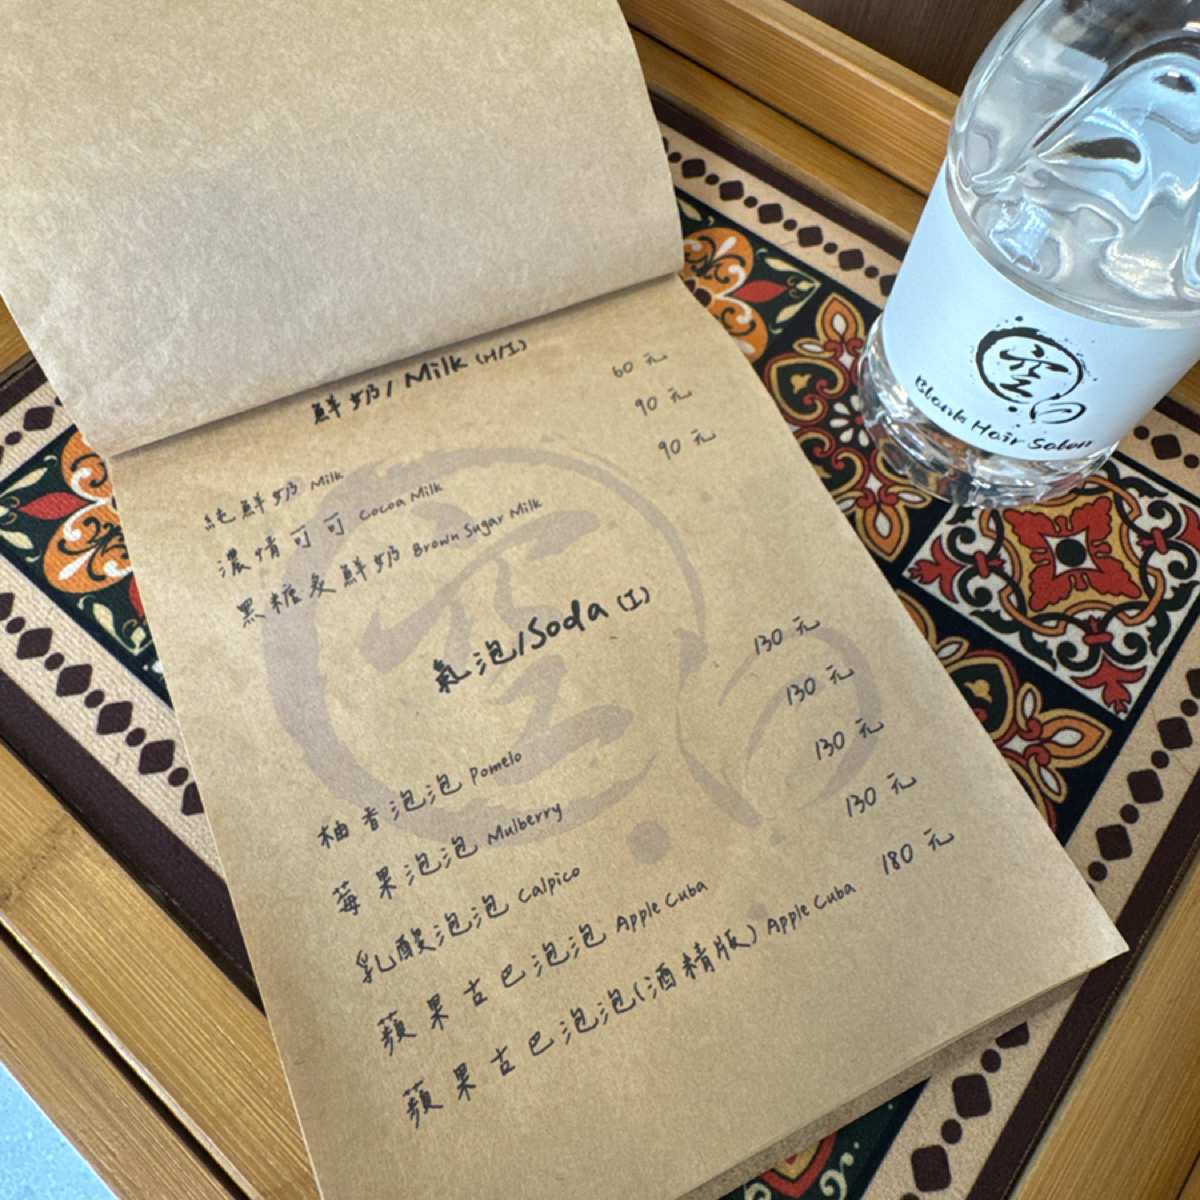 鮮奶/Milk (H/I)
純鮮奶 Milk 60元
濃情可可 Cocoa Milk 90元
黑糖炙鮮奶 Brown Sugar Milk 90元
氣泡/Soda (I)
柚香泡泡 Pomelo 130元
莓果泡泡 Mulberry 130元
乳酸泡泡 Calpico 130元
蘋果古巴泡泡 Apple Cuba 130元
蘋果古巴泡泡(酒精版) Apple Cuba 180元
空白
Blank Hair Salon